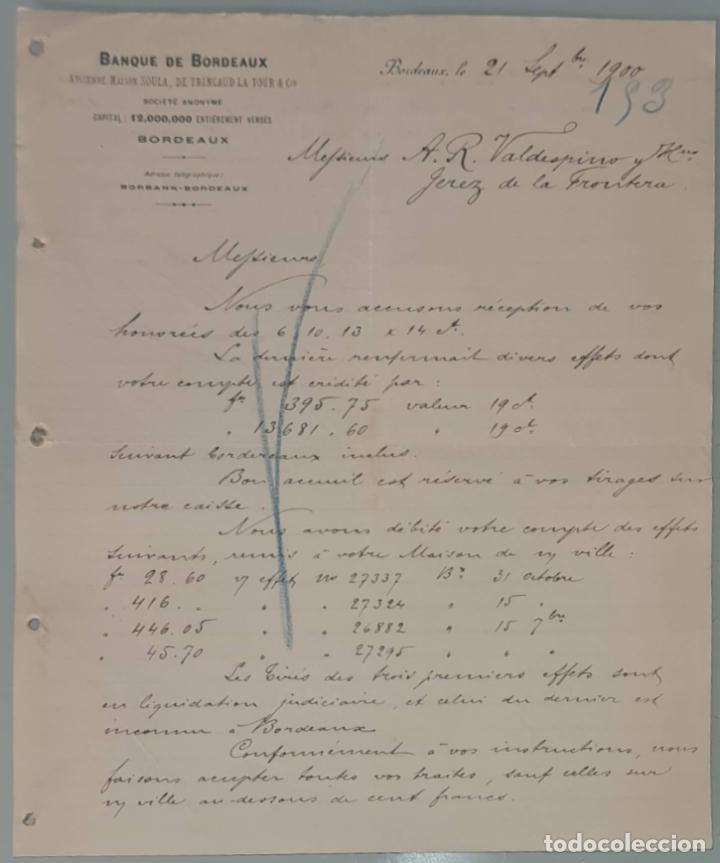 BANQUE DE BORDEAUX
ANCIENNE MAISON SOULA, DE TRINCAUD LA TOUR & Cie
SOCIÉTÉ ANONYME
CAPITAL : 12,000,000 ENTIÈREMENT VERSÉS
BORDEAUX
Adresse télégraphique :
BORBANK-BORDEAUX
Bordeaux, le 21 Septbre 1900
193
Messieurs A. R. Valdespino y Hno
Jerez de la Frontera.
Messieurs,
Nous vous accusons réception de vos
honorées des 6, 10, 13 & 14 ct.
La dernière renfermait divers effets dont
votre compte est crédité par :
fr. 395.75 valeur 19 ct.
" 13681.60 " 19 ct.
suivant bordereaux inclus.
Bon accueil est réservé à vos tirages sur
notre caisse.
Nous avons débité votre compte des effets
suivants, remis à votre Maison de n/ ville :
fr. 28.60 n/ effet no 27337 31 octobre
" 416. " " " 27324 " 15 "
" 446.05 " " 26882 " 15 7bre
" 45.70 " " 27295 "
Les tirés des trois premiers effets sont
en liquidation judiciaire, et celui du dernier est
inconnu à Bordeaux.
Conformément à vos instructions, nous
faisons accepter toutes vos traites, sauf celles sur
n/ ville au-dessous de cent francs.
todocoleccion